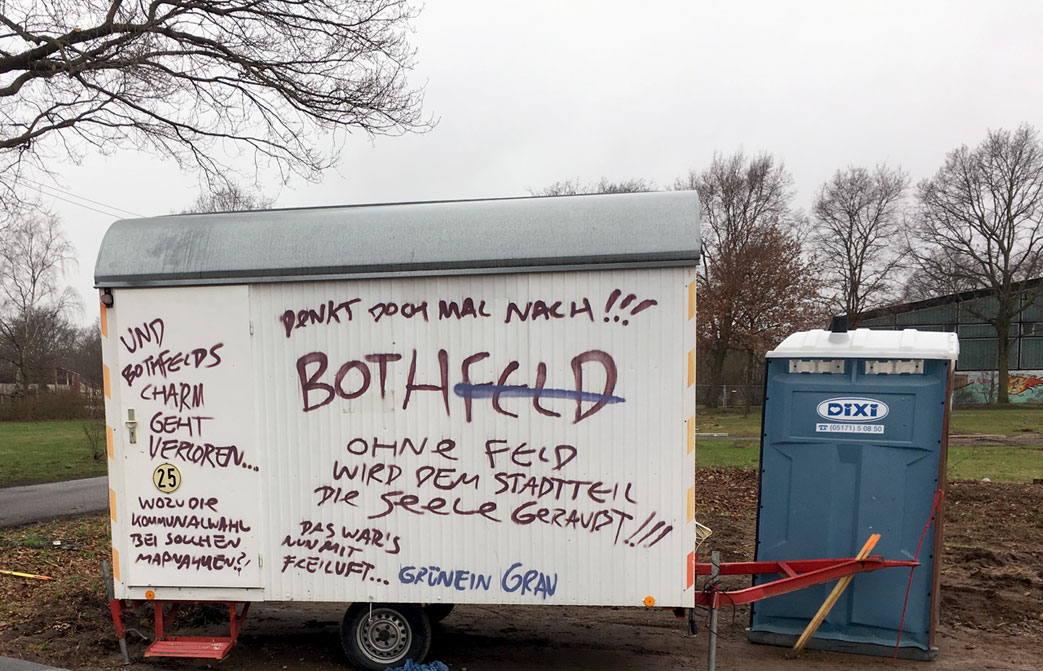 UND
BOTHFELDS
CHARM
GEHT
VERLOREN...
25
WOZU DIE
KOMMUNALWAHL
BEI SOLCHEN
MAßNAHMEN?!
DENKT DOCH MAL NACH!!!
BOTHFELD
OHNE FELD
WIRD DEM STADTTEIL
DIE SEELE GERAUBT!!!
DAS WAR'S
NUN MIT
FREILUFT...
GRÜN EIN GRAU
DIXI
(05171) 5 08 50